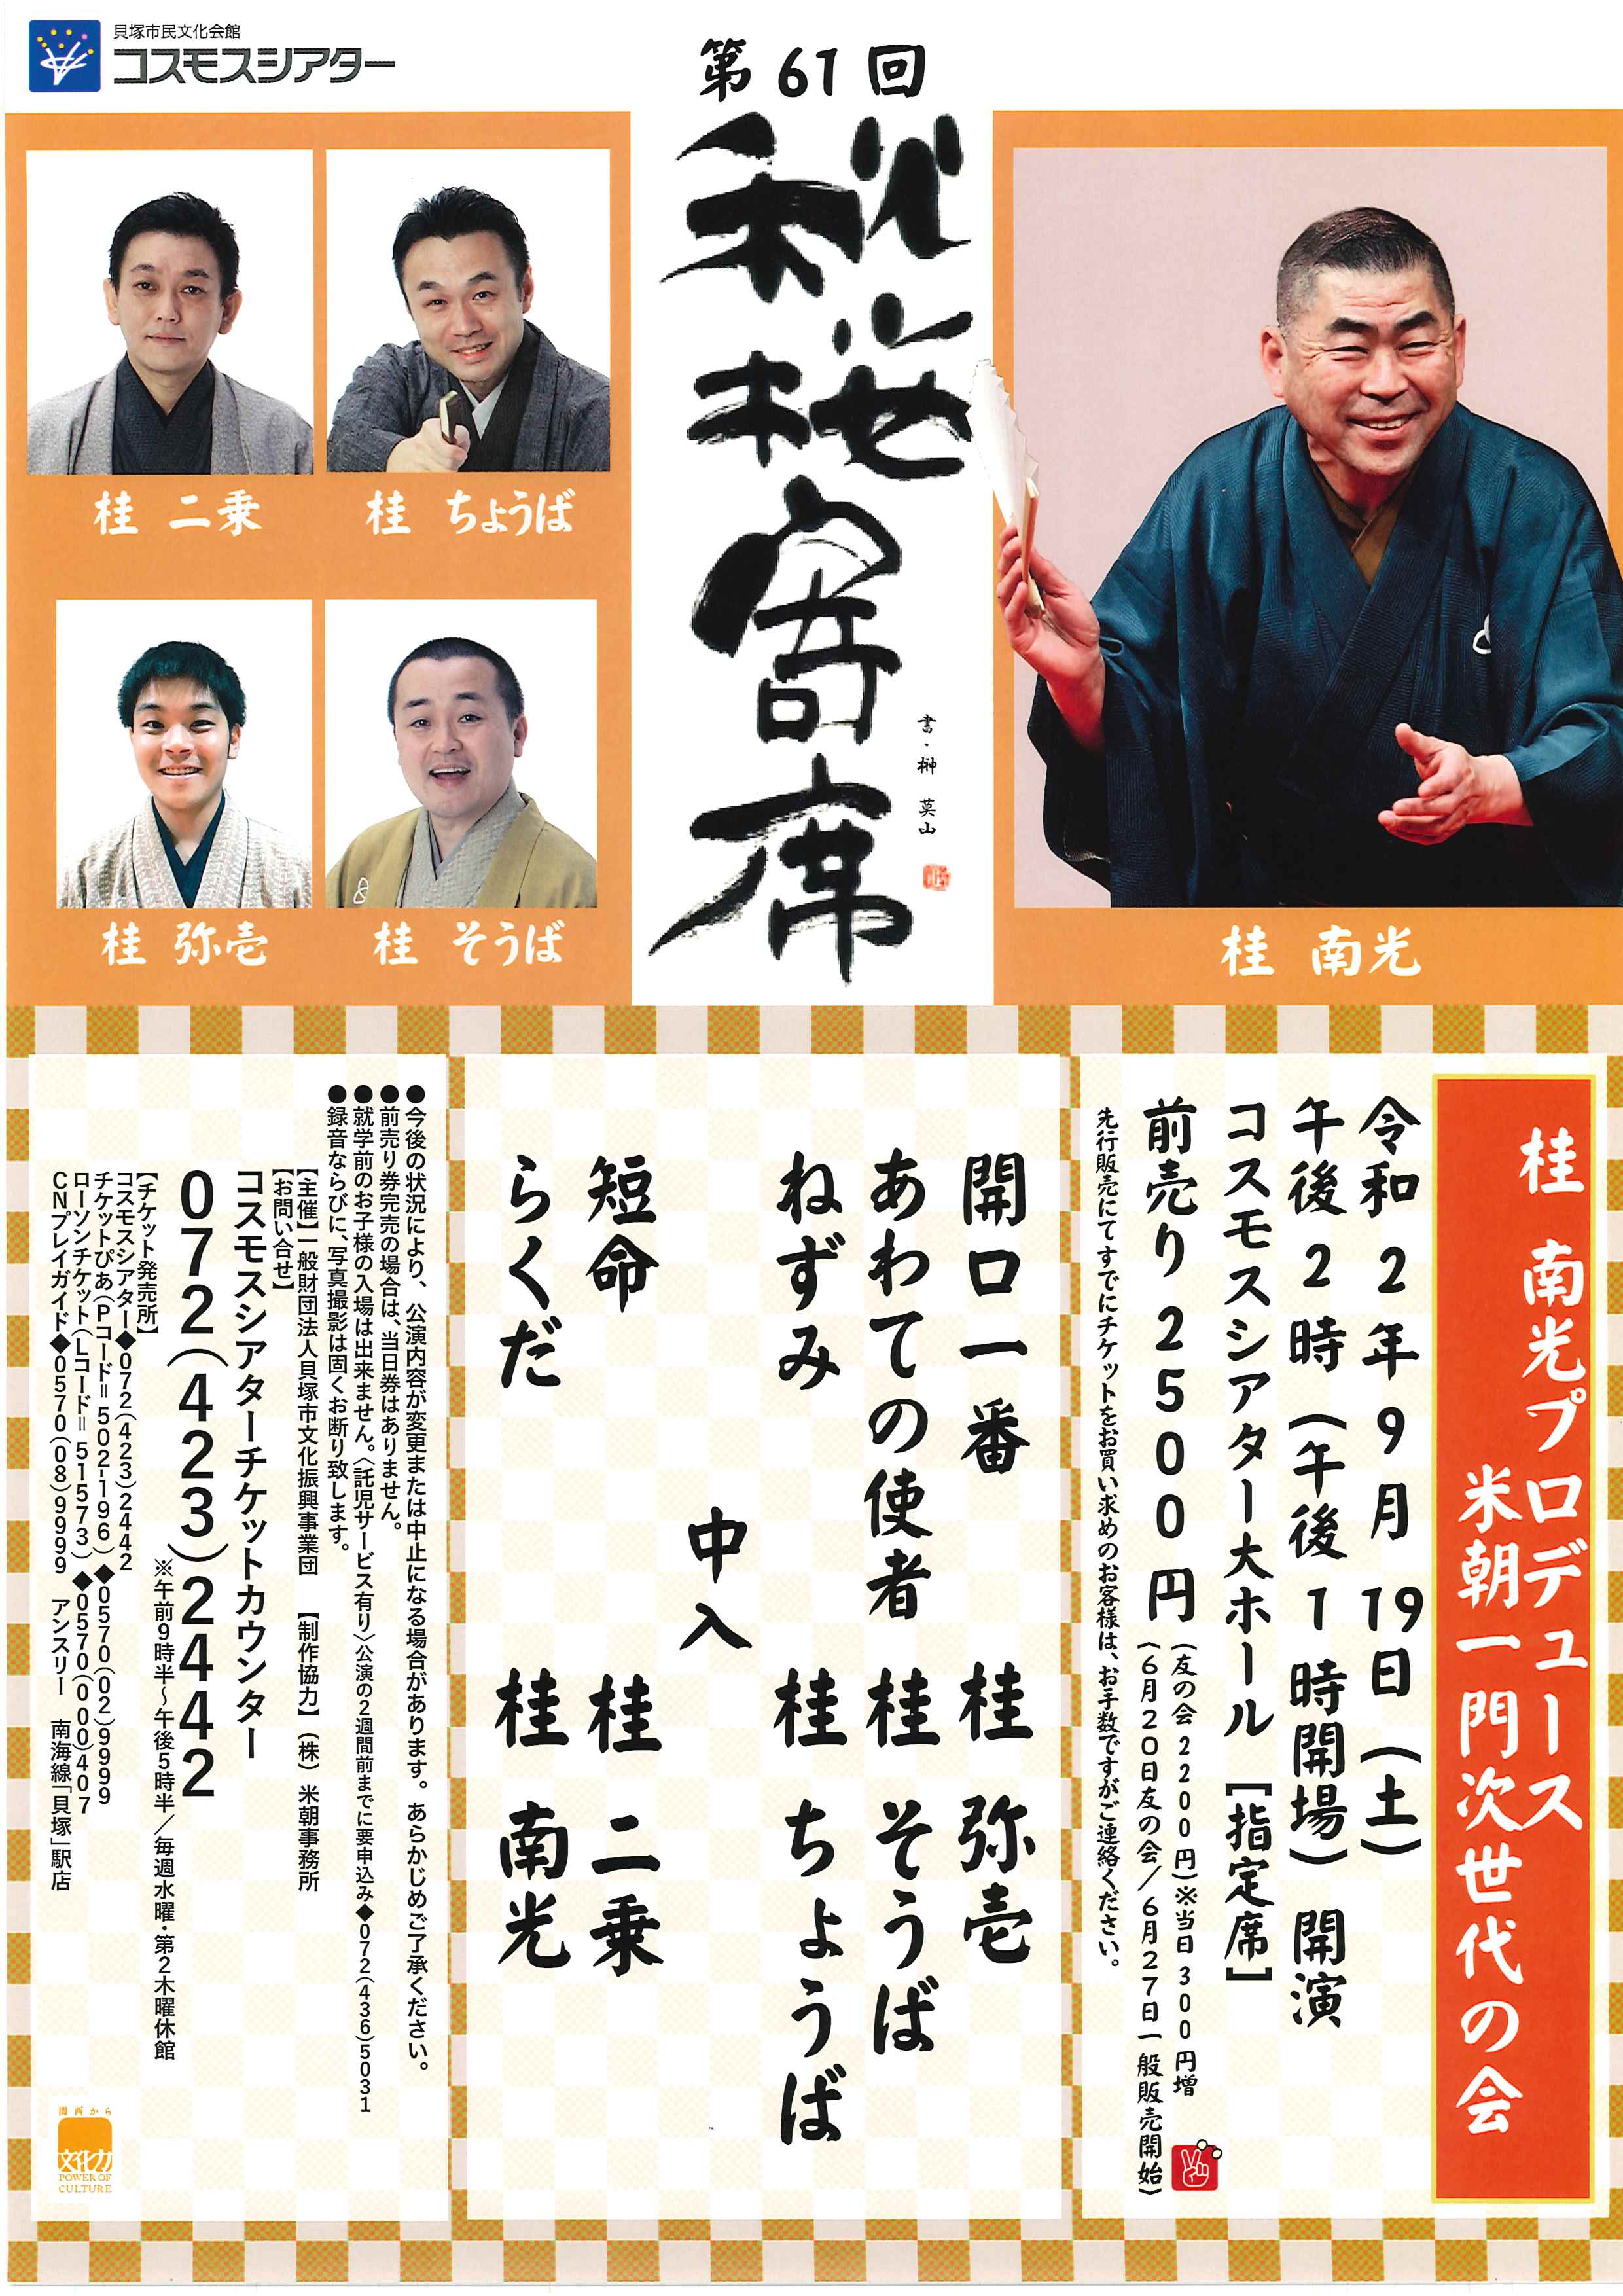 貝塚市民文化会館
コスモスシアター
第61回
秋桜寄席
書・榊 莫山
桂 南光
桂 二乗
桂 ちょうば
桂 弥壱
桂 そうば
桂 南光プロデュース
米朝一門次世代の会
令和2年9月19日(土)
午後2時(午後1時開場)開演
コスモスシアター大ホール [指定席]
前売り2500円
(友の会2200円)※当日300円増
(6月20日友の会/6月27日一般販売開始)
先行販売にてすでにチケットをお買い求めのお客様は、お手数ですがご連絡ください。
開口一番 桂 弥壱
あわての使者 桂 そうば
ねずみ 桂 ちょうば
中入
短命 桂 二乗
らくだ 桂 南光
●今後の状況により、公演内容が変更または中止になる場合があります。あらかじめご了承ください。
●前売り券完売の場合は、当日券はありません。
●就学前のお子様の入場は出来ません。〈託児サービス有り〉公演の2週間前までに要申込み◆072(436)5031
●録音ならびに、写真撮影は固くお断り致します。
【主催】一般財団法人貝塚市文化振興事業団 【制作協力】(株)米朝事務所
【お問い合せ】
コスモスシアターチケットカウンター
072(423)2442
※午前9時半〜午後5時半/毎週水曜・第2木曜休館
【チケット発売所】
コスモスシアター◆072(423)2442
チケットぴあ(Pコード=502-196)◆0570(02)9999
ローソンチケット(Lコード=51573)◆0570(000)407
CNプレイガイド◆0570(08)9999 アンスリー 南海線「貝塚」駅店
関西から
文化力
POWER OF
CULTURE